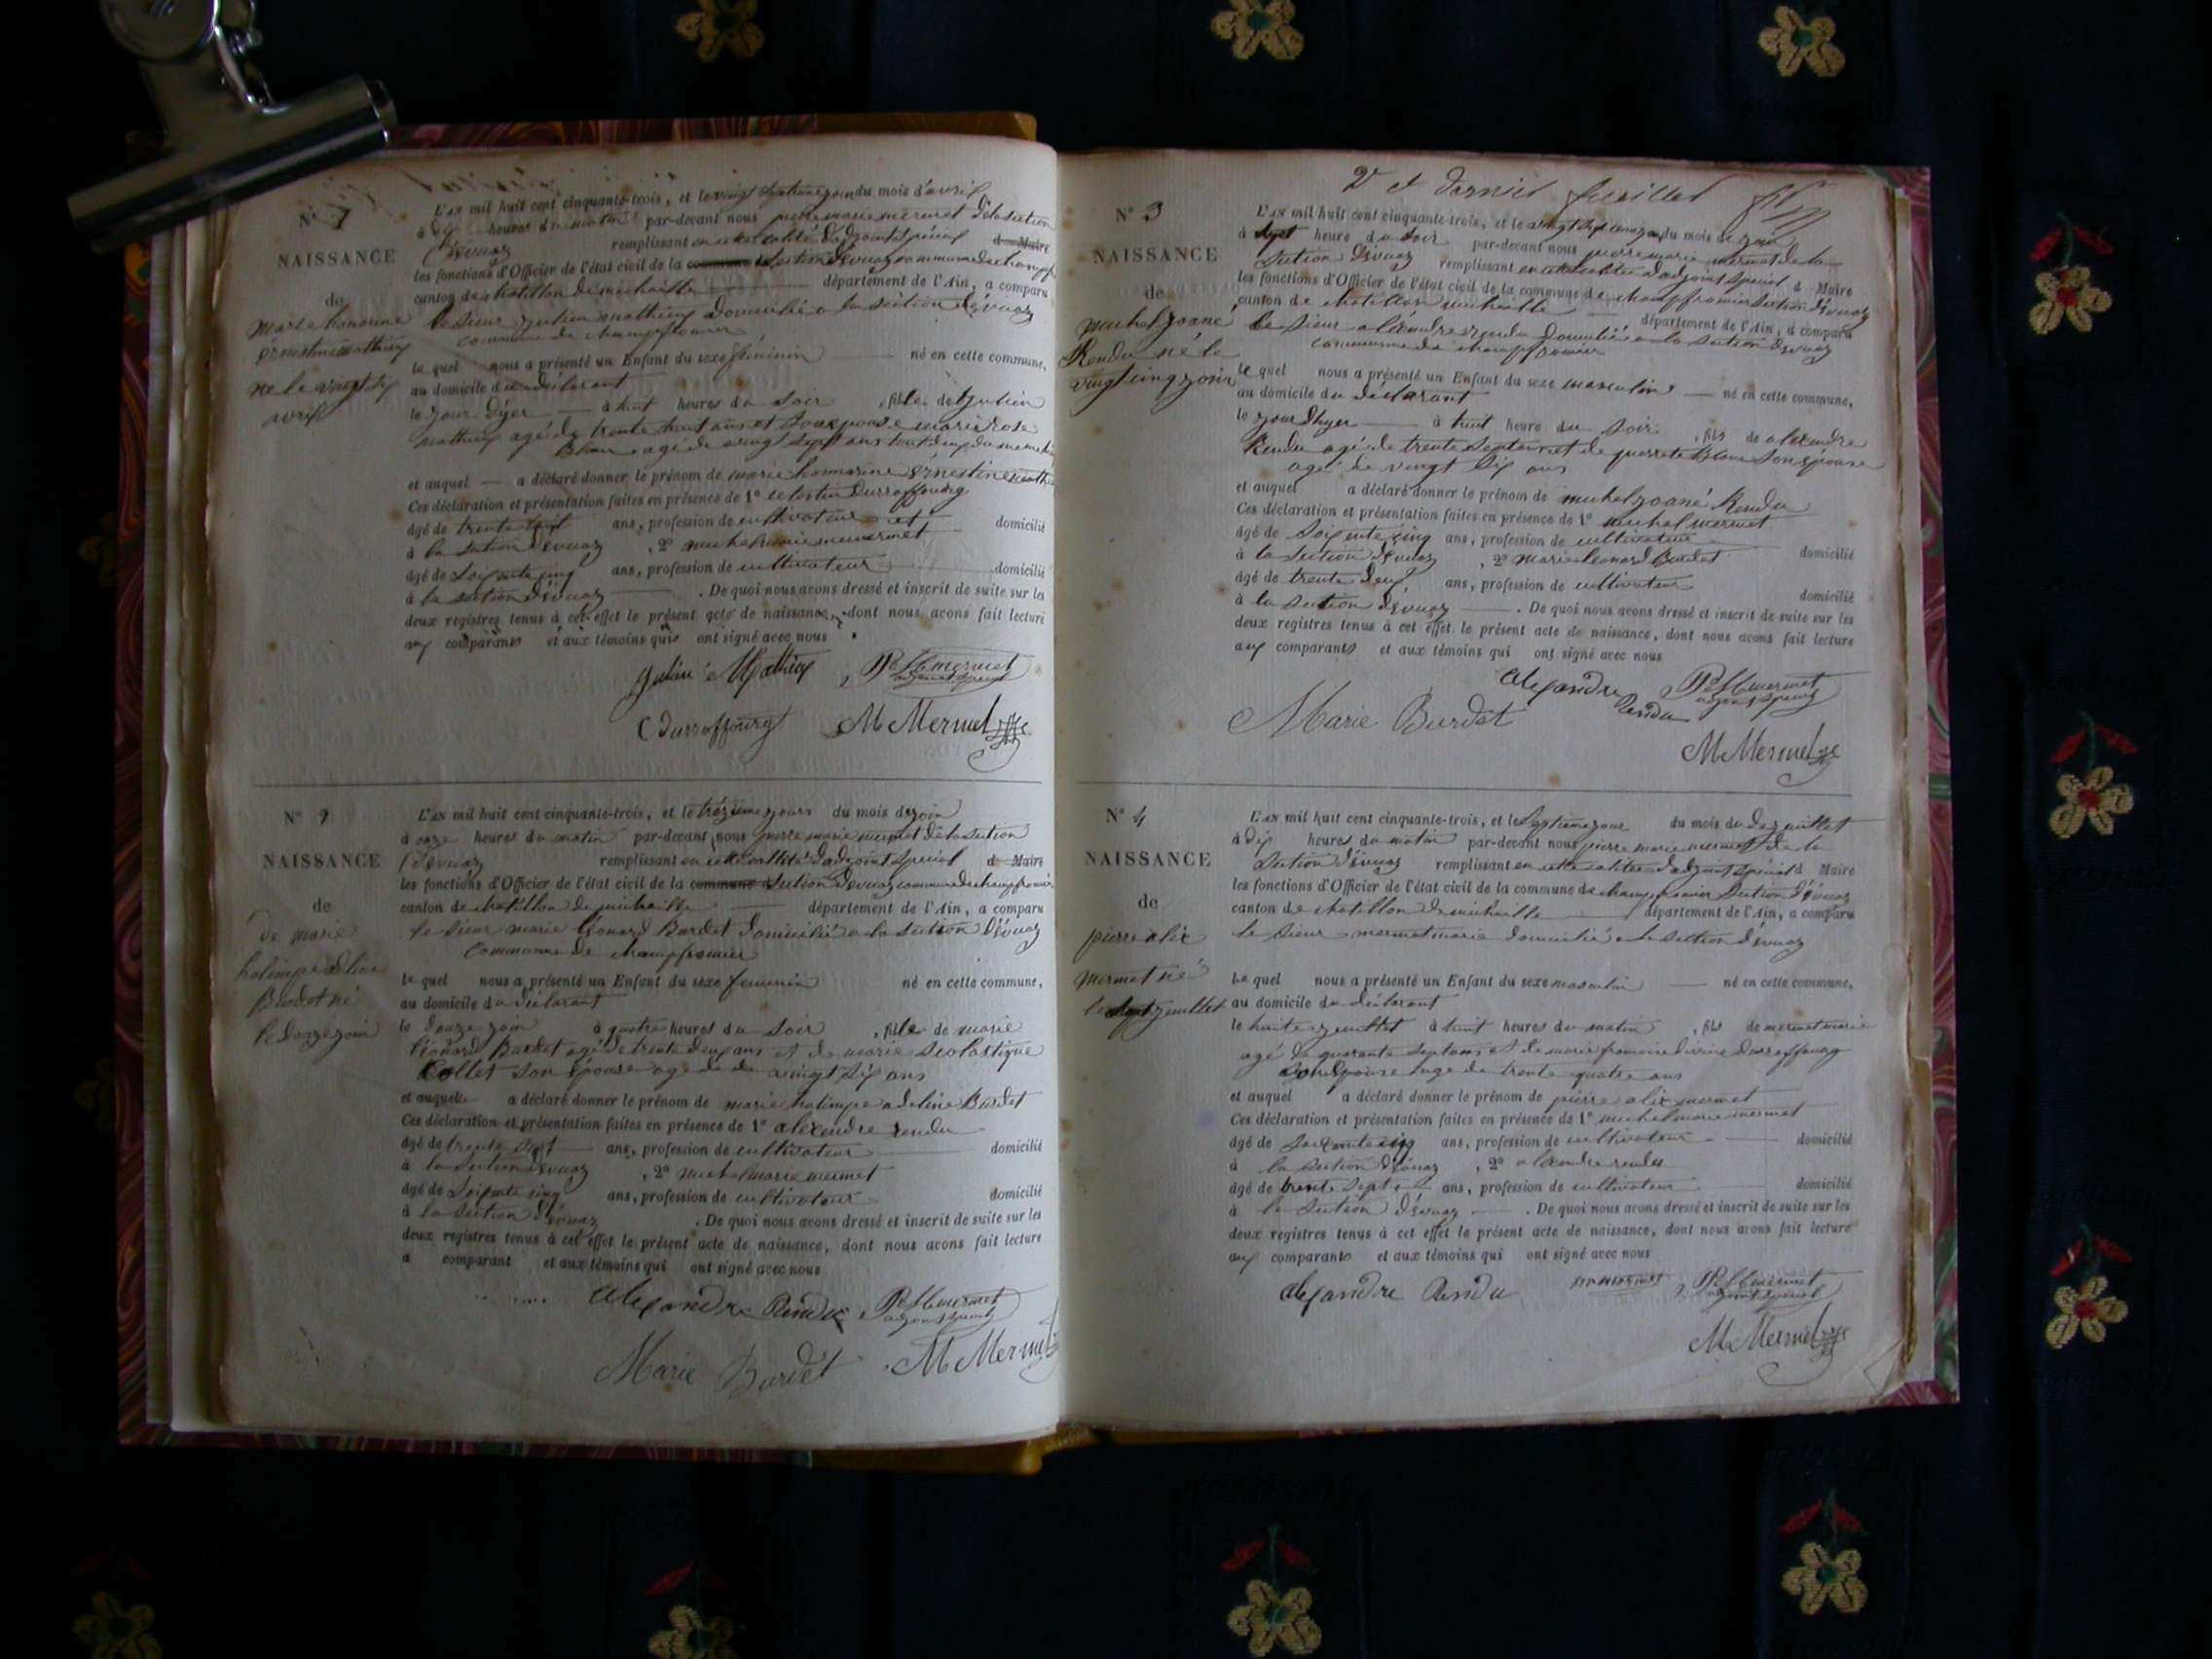 N° 1
NAISSANCE
de
marie honorine
ernestine mathieu
né le vingt six
avril
L'AN mil huit cent cinquante-trois, et le vingt septieme jour du mois d'avril
à dix heures du matin par-devant nous pierre marie mermet de la section
d'évuaz remplissant en cette calité d'adjoint spécial d Maire
les fonctions d'Officier de l'état civil de la commune section d'évuaz commune de champfr
canton de chatillon de michaille département de l'Ain, a comparu
le sieur julien mathieu domicilié a la section d'évuaz
commune de champfromier
le quel nous a présenté un Enfant du sexe féminin né en cette commune,
au domicile du déclarant
le jour d'yer à huit heures du soir , fille de julien
mathieu agé de trente huit ans et son epouse marie rose
agé de vingt sept ans tout deux du meme
et auquel a déclaré donner le prénom de marie honnorine ernestine
Ces déclaration et présentation faites en présence de 1° celestin durraffourg
âgé de trente sept ans, profession de cultivateur et domicilié
à la section d'évuaz , 2° michel marie mermet
âgé de soixante cinq ans, profession de cultivateur domicilié
à la section d'évuaz . De quoi nous avons dressé et inscrit de suite sur les
deux registres tenus à cet effet le présent acte de naissance, dont nous avons fait lecture
aux comparants et aux témoins qui ont signé avec nous
julien Mathieu PreMmermet
adjoint spécial
C Durraffourg M Mermet
N° 2
NAISSANCE
de
de marie
holimpe adeline
Burdet né
le douze join
L'AN mil huit cent cinquante-trois, et le trézieme jours du mois de join
à onze heures du matin par-devant nous pierre marie mermet de la section
d'évuaz remplissant en cette callité d'adjoint spécial d Maire
les fonctions d'Officier de l'état civil de la commune section d'évuaz commune de champfromier
canton de chatillon de michaille département de l'Ain, a comparu
le sieur marie léonard Burdet domicilié a la section d'évuaz
commune de champfromier
le quel nous a présenté un Enfant du sexe feminin né en cette commune,
au domicile du déclarant
le douze join à quatre heures du soir , fille de marie
léonard Burdet agé de trente deux ans et de marie scolastique
Collet son épouse agé de de vingt six ans
et auquelle a déclaré donner le prénom de marie holimpe adeline Burdet
Ces déclaration et présentation faites en présence de 1° alexendre rendu
âgé de trente sept ans, profession de cultivateur domicilié
à la section d'évuaz , 2° michel marie mermet
âgé de soixante cinq ans, profession de cultivateur domicilié
à la section d'évuaz . De quoi nous avons dressé et inscrit de suite sur les
deux registres tenus à cet effet le présent acte de naissance, dont nous avons fait lecture
a comparant et aux témoins qui ont signé avec nous
alexandre Rendu PreMmermet
adjoint spécial
Marie Burdet M Mermet
2e et dernier feuillet
N° 3
NAISSANCE
de
michel joané
Rendu né le
vingt cinq join
L'AN mil huit cent cinquante-trois, et le vingt six du mois de join
à sept heure du soir par-devant nous pierre marie mermet de la
section d'évuaz remplissant en cette calitée d'adjoint spécial d Maire
les fonctions d'Officier de l'état civil de la commune de champfromier section d'évuaz
canton de chatillon michaille département de l'Ain, a comparu
le sieur alexendre rendu domicilié a la section d'évuaz
commune de champfromier
le quel nous a présenté un Enfant du sexe masculin né en cette commune,
au domicile du déclarant
le jour d'hyer à huit heure du soir , fils de alexendre
Rendu agé de trente sept ans et de pierrete Blanc son épouse
agé de vingt six ans
et auquel a déclaré donner le prénom de michel joané Rendu
Ces déclaration et présentation faites en présence de 1° michel mermet
âgé de soixante cinq ans, profession de cultivateur
à la section d'évuaz , 2° marie léonard Burdet domicilié
âgé de trente deux ans, profession de cultivateur
à la section d'évuaz . De quoi nous avons dressé et inscrit de suite sur les domicilié
deux registres tenus à cet effet le présent acte de naissance, dont nous avons fait lecture
aux comparants et aux témoins qui ont signé avec nous
alexandre Rendu PreMmermet
adjoint spécial
Marie Burdet
M Mermet
N° 4
NAISSANCE
de
pierre alix
mermet né
le sept juillet
L'AN mil huit cent cinquante-trois, et le septieme jour du mois du de juillet
à dix heures du matin par-devant nous pierre marie mermet de la
section d'évuaz remplissant en cette calitée d'adjoint spécial d Maire
les fonctions d'Officier de l'état civil de la commune de champfromier section d'évuaz
canton de chatillon de michaille département de l'Ain, a comparu
le sieur mermet marie domicilié a la section d'évuaz
le quel nous a présenté un Enfant du sexe masculin né en cette commune,
au domicile du déclarant
le juillet à huit heures du matin , fils de mermet marie
agé de quarante sept ans et de marie divine durraffourg
son épouse agé de trente quatre ans
et auquel a déclaré donner le prénom de pierre alix mermet
Ces déclaration et présentation faites en présence de 1° michel marie mermet
âgé de soixante cinq ans, profession de cultivateur domicilié
à la section d'évuaz , 2° alexendre rendu
âgé de trente sept ans, profession de cultivateur domicilié
à la section d'évuaz . De quoi nous avons dressé et inscrit de suite sur les
deux registres tenus à cet effet le présent acte de naissance, dont nous avons fait lecture
aux comparants et aux témoins qui ont signé avec nous
alexandre Rendu mermet PreMmermet
adjoint spécial
M Mermet